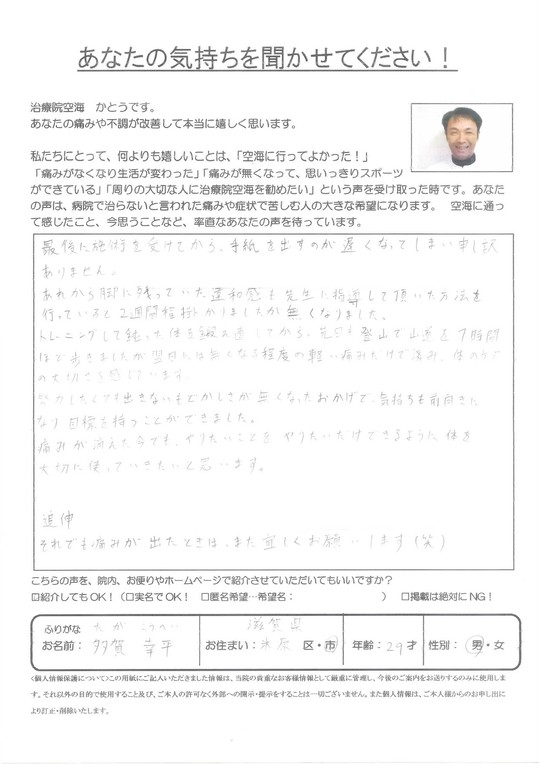 あなたの気持ちを聞かせてください！
治療院空海　かとうです。
あなたの痛みや不調が改善して本当に嬉しく思います。
私たちにとって、何よりも嬉しいことは、「空海に行ってよかった！」
「痛みがなくなり生活が変わった」「痛みが無くなって、思いっきりスポーツ
ができている」「周りの大切な人に治療院空海を勧めたい」という声を受け取った時です。あなた
の声は、病院で治らないと言われた痛みや症状で苦しむ人の大きな希望になります。　空海に通っ
て感じたこと、今思うことなど、率直なあなたの声を待っています。
最後に施術を受けてから、手紙を出すのが遅くなってしまい申し訳
ありません。
あれから脚に残っていた違和感も先生に指導して頂いた方法を
行っていると2週間程掛かりましたが無くなりました。
トレーニングして鈍った体を鍛え直してから、先日も登山で山道を7時間
ほど歩きましたが翌日には無くなる程度の軽い痛みだけで済み、体のケア
の大切さを感じています。
したくても出来ないもどかしさが無くなったおかげで、気持ちも前向きに
なり目標を持つことができました。
痛みが消えた今でも、やりたいことをやりたいだけできるように体を
大切に使っていきたいと思います。
追伸
それでも痛みが出たときは、また宜しくお願いします(笑)
こちらの声を、院内、お便りやホームページで紹介させていただいてもいいですか？
☑紹介してもOK！（□実名でOK！　□匿名希望…希望名：　　　　　　　）　□掲載は絶対にNG！
ふりがな　たが　こうへい　滋賀県
お名前：多賀 幸平　お住まい：米原　区・市　年齢：29才　性別：男・女
<個人情報保護について>この用紙にご記入いただきました情報は、当院の貴重なお客様情報として厳重に管理し、今後のご案内をお送りするのみに使用しま
す。それ以外の目的で使用すること及び、ご本人の許可なく外部への開示・提示をすることは一切ございません。また個人情報は、ご本人様からのお申し出に
より訂正・削除いたします。